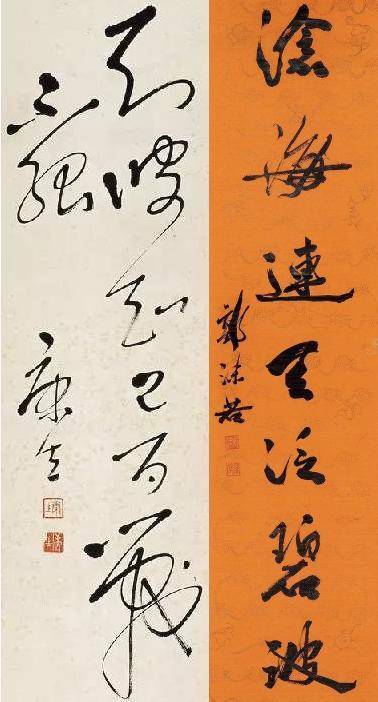 滄海連天泛碧波
郭沫若
知彼知己百戰
不殆
康生